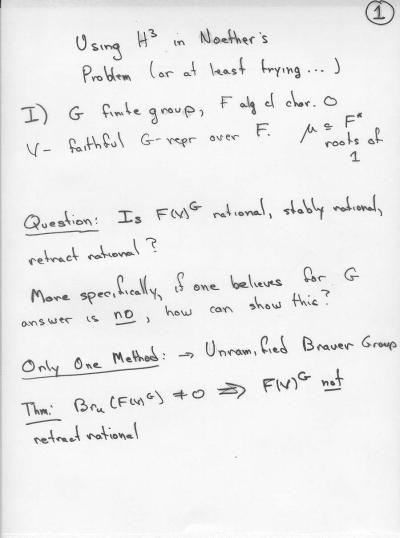 1
Using H³ in Noether's
Problem (or at least trying ... )
I) G finite group, F alg cl char. 0
V - faithful G-repr over F. μ ⊆ F*
roots of
1
Question: Is F(V)ᴳ rational, stably rational,
retract rational?
More specifically, if one believes for G
answer is no, how can show this?
Only One Method: → Unramified Brauer Group
Thm: Bru (F(V)ᴳ) ≠ 0 ⇒ F(V)ᴳ not
retract rational